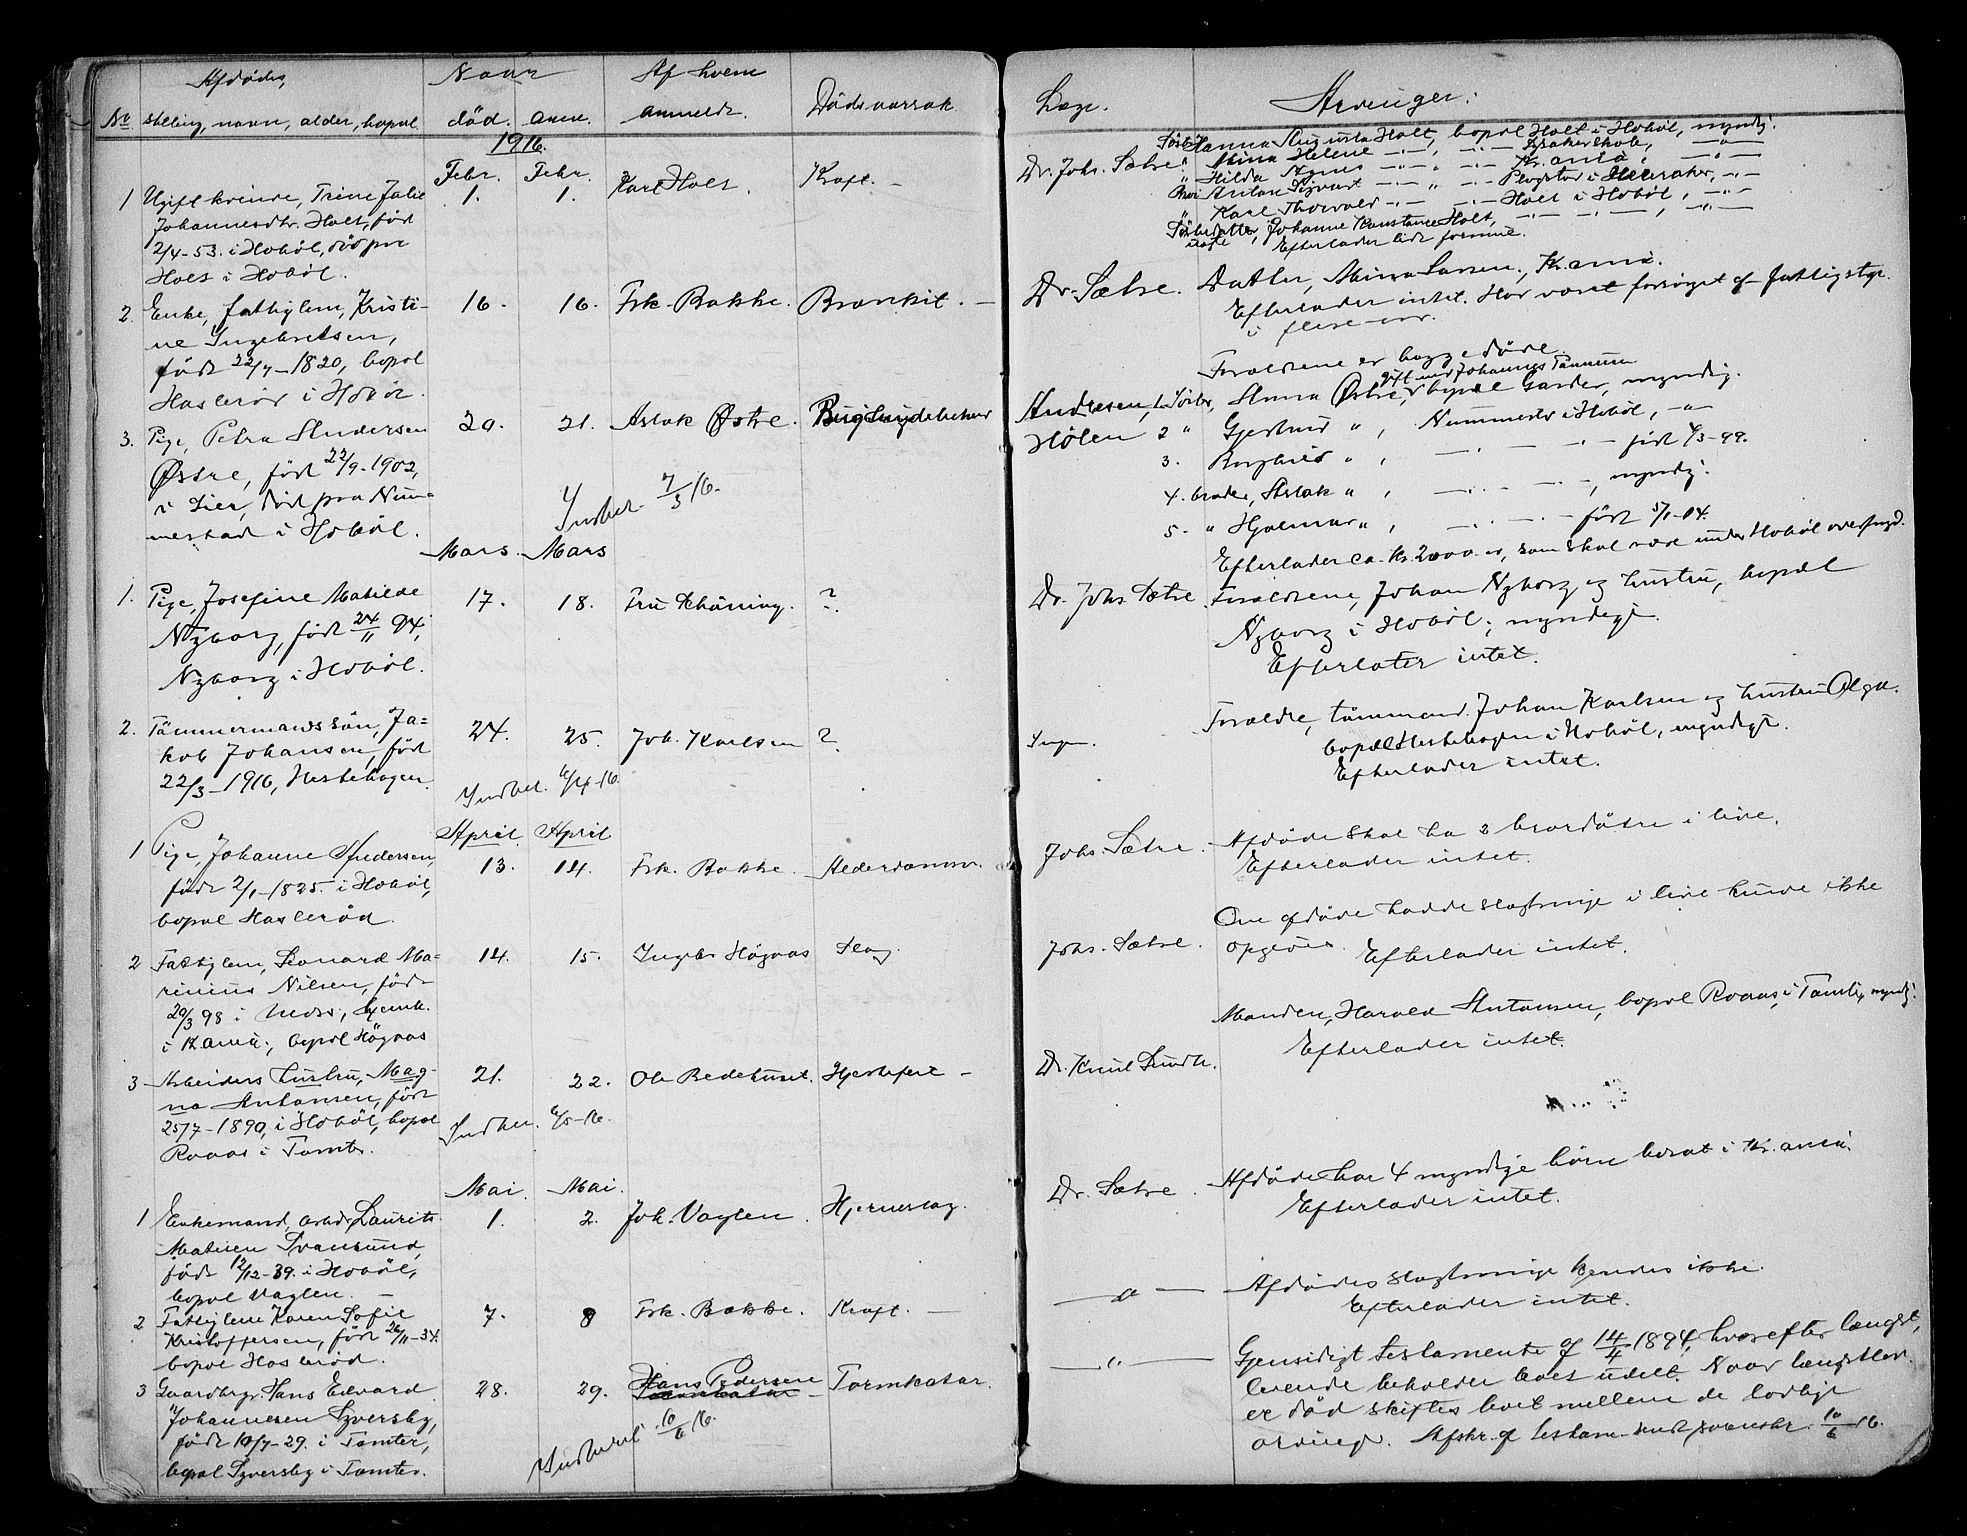 Afdødes,
Naar
Af hvem
No stilling, navn, alder, bopæl.
død. anm.
anmeldt.
Dødsaarsak
1916.
Febr. Febr.
1 Ugift kvinde, Trine Julie 1. 1. Karl Holt. Kræft. –
Johannesdtr. Holt, født
2/4-53. i Hobøl, død paa
Holt i Hobøl.
2. Enke, fattiglem, Kristi- 16. 16. Frk. Bakke. Bronkit. –
ne Ingebretsen,
født 22/7-1820, bopæl
Haslerød i Hobøl.
3. Pige, Petra Andersen 20. 21. Aslak Østre.
Østre, født 22/9-1902,
i Lier, død paa Num-
mestad i Hobøl.
Indber. 7/3 16.
Mars. Mars
1. Pige, Josefine Matilde 17. 18. Fru Schöning. ?
Nyborg, født 24/11 94,
Nyborg i Hobøl.
2. Tømmermandssøn, Ja- 24. 25. Joh. Karlsen ?
kob Johansen, født
22/3-1916, Hestehagen.
Indber. 6/4-16.
April April
1 Pige, Johanne Andersen, 13. 14. Frk. Bakke. Alderdomm.
født 2/1-1825 i Hobøl,
bopæl Haslerød.
2 Fattiglem, Leonard Ma- 14. 15. Ingebr Högaas Slag.
rinius Nilsen, født
20/3 98 i Moss, hjemh.
i Kr.ania, bopæl Högaas
3 Arbeiders hustru, Mag- 21. 22. Ole Bedehuset. Hjertefeil –
na Antonsen, født
25/7-1890, i Hobøl, bopæl
Raaas i Tomter.
Indber. 6/5-16.
Mai. Mai.
1 Enkemand, arbdr Laurits 1. 2. Joh. Vaglen. Hjerneslag.
Matisen Svansund,
født 12/12-39. i Hobøl,
bopæl Vaglen. –
2 Fattiglem Karen Sofie 7. 8 Frk. Bakke. Kræft. –
Kristoffersen, født 26/11-34.
bopæl Haslerød.
3 Gaardbrgr. Hans Edvard 28. 29. Hans Pedersen Tarmkatar.
Johannesen Syversby,
født 10/7-29. i Tomter,
bopæl Syversby i Tomter.
Indberet 6/6 16.
Læge.
Arvinger.
Dr. Johs. Sætre Søster Hanna Augusta Holt, bopæl Holt i Hobøl, myndig.
" Mina Helene
" Hilda Agnes Kr.ania,
Bror Anton Sigvart
" Karl Thorvald Holt i Hobøl,
Søsterdatter, Johanne Konstance Holt,
Efterlader lidt formue.
Dr. Sætre. Datter, Mina Larsen, Kr.ania.
Efterlader intet. Har været forsørget af fattigstyr.
i flere aar.
Forældrene er begge døde.
gift med Johannes Tømmum
Andresen, 1. Søster, Anna Østre, bopæl Garder, myndig.
Hølen 2 " Gjertrud " , Nummestad i Hobøl, –"–
3. Borghild " , født 4/3-99.
4. broder, Aslak " , myndig.
5. " Hjalmar " , født 5/1-04.
Efterlader ca. kr. 2000.00, som skal være under Hobøl overfmynd.
Dr. Johs Sætre. Forældrene, Johan Nyborg og hustru, bopæl
Nyborg i Hobøl, myndige.
Efterlater intet.
Ingen. Forældre, tømmermand Johan Karlsen og hustru Olga.
bopæl Hestehagen i Hobøl, myndige.
Efterlader intet.
Johs. Sætre. Afdøde skal ha 2 brordøtre i live.
Efterlader intet.
Johs. Sætre. Om afdøde hadde slægtninge i live kunde ikke
opgives. Efterlader intet.
Dr. Knut Sundt. Manden, Harald Antonsen, bopæl Raaas, i Tomter, myndig.
Efterlader intet.
Dr. Sætre. Afdøde har 4 myndige børn bosat i Kr.ania.
Efterlader intet.
–"– Afdødes slægtninge kjendes ikke.
Efterlader intet.
–"– Gjensidigt testamente af 14/4 1894, hvorefter længst-
levende beholder boet udelt. Naar længstlev.
er død skiftes boet mellem de lovlige
arvinge. Afskr. af testam. sendt sorenskr. 10/6 16.